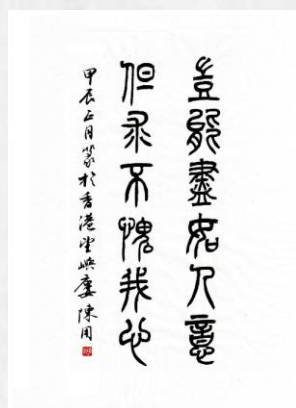 豈能盡如人意
但求不愧我心
甲辰正月篆於香港望嶼廔陳用